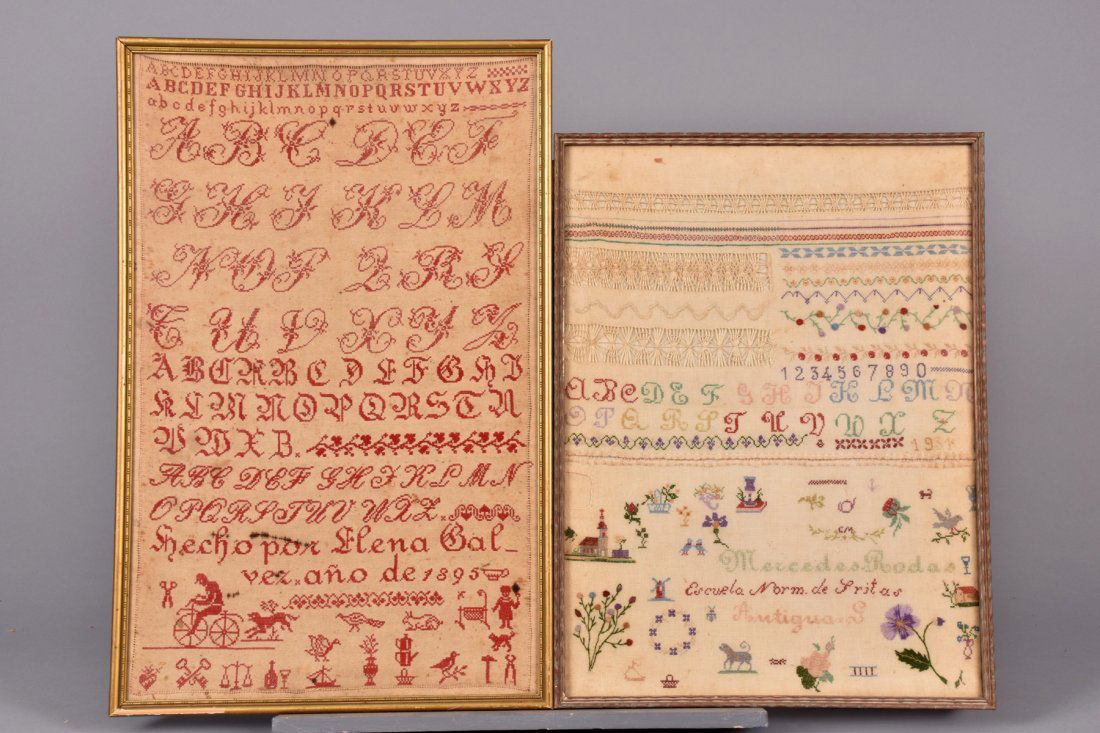 ABCDEFGHIJKLMNOPQRSTUVXYZ
ABCDEFGHIJKLMNOPQRSTUVWXYZ
abcdefghijklmnopqrstuvwxyz
A B C D E F
G H I K L M
N O P Q R S
T U V X Y Z
ABCRBCDEFGHI
KLMNOPQRSTU
VWXB.
ABC DEF GHI KLMN
OPQRSTUV WXZ.
hecho por Elena Gal_
vez. año de 1895
1234567890
ABCDEF GHIKLMN
OPQRSTUVWXZ
CM
Mercedes Rodas
Escuela Norm. de Sritas
Antigua. G